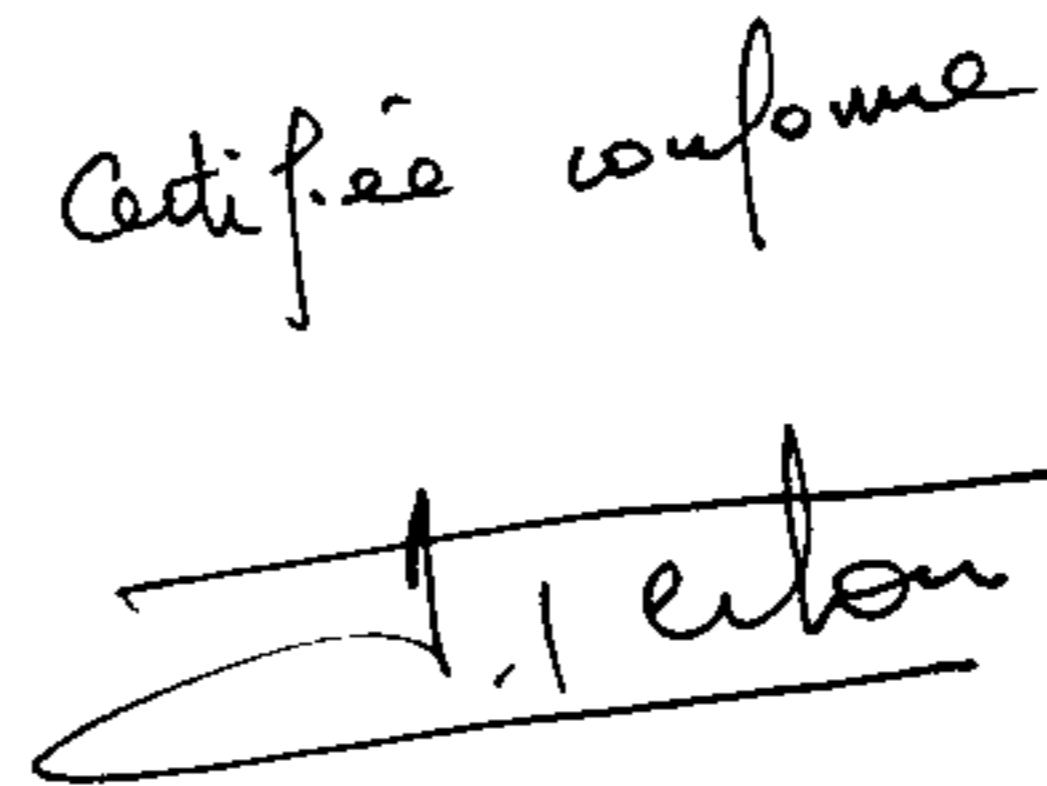 Certifiée conforme